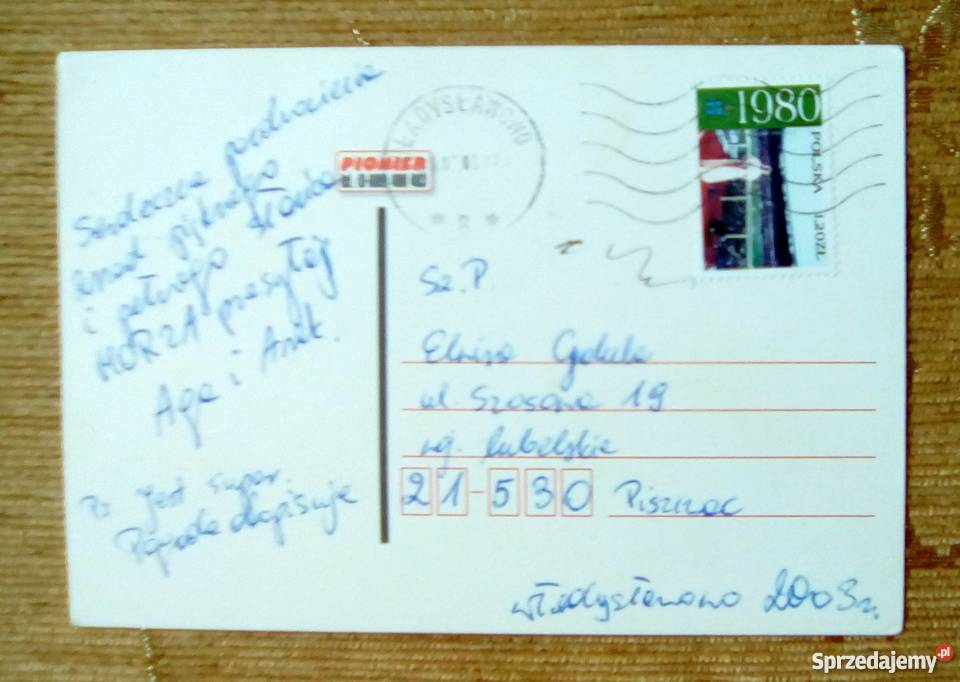 Serdeczne pozdrowienia
znad pięknego
i pełnego słońca
MORZA przesyłają
Aga i Arek.
Ps. Jest super.
Pogoda dopisuje
PIONIER
WŁADYSŁAWOWO
* B *
1980
POLSKA 1.20ZŁ
Sz. P.
Elwira
ul. Szosowa 19
lubelskie
21-530 Piszczac
Władysławowo 2003r.
Sprzedajemy.pl